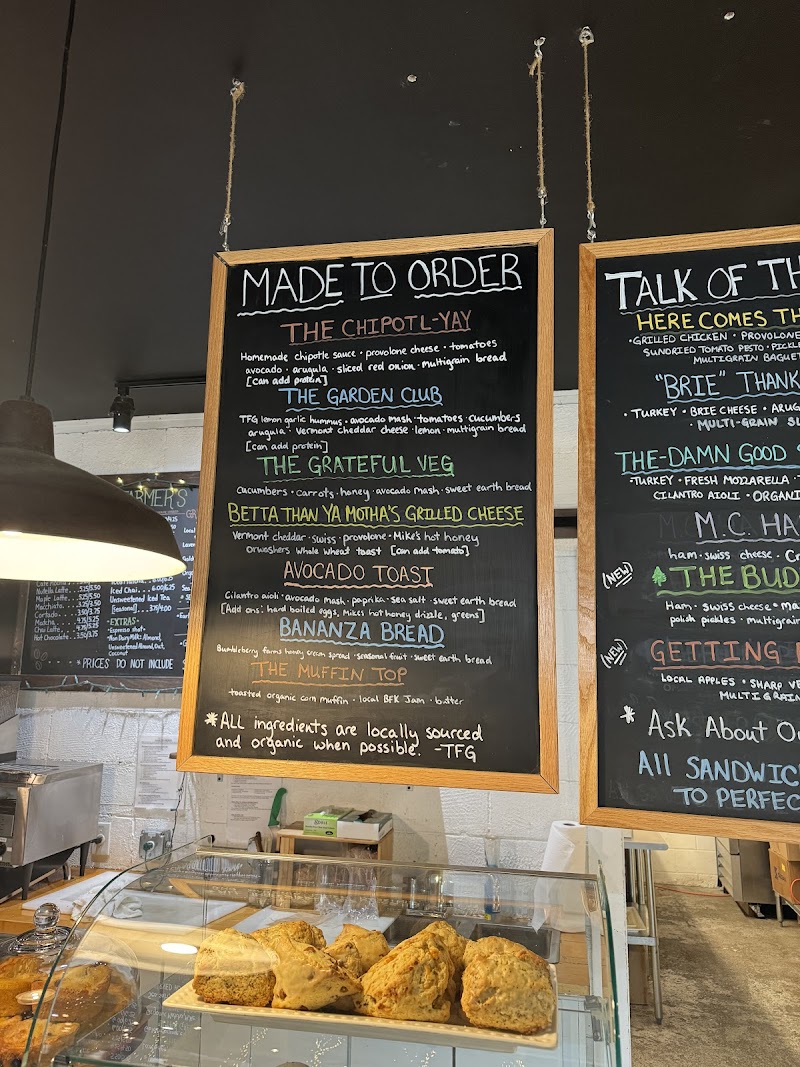 MADE TO ORDER
THE CHIPOTL-YAY
Homemade chipotle sauce • provolone cheese • tomatoes
avocado • arugula • sliced red onion • multigrain bread
[can add protein]
THE GARDEN CLUB
TFG lemon garlic hummus • avocado mash • tomatoes • cucumbers
arugula • Vermont cheddar cheese • lemon • multigrain bread
[can add protein]
THE GRATEFUL VEG
cucumbers • carrots • honey • avocado mash • sweet earth bread
BETTA THAN YA MOTHA'S GRILLED CHEESE
Vermont cheddar • swiss • provolone • Mike's hot honey
Orwashers whole wheat toast [can add tomato]
AVOCADO TOAST
Cilantro aioli • avocado mash • paprika • sea salt • sweet earth bread
[Add ons: hard boiled eggs, Mikes hot honey drizzle, greens]
BANANZA BREAD
Bumbleberry farms honey cream spread • seasonal fruit • sweet earth bread
THE MUFFIN TOP
toasted organic corn muffin • local BFK Jam • butter
*ALL ingredients are locally sourced
and organic when possible. -TFG
TALK OF TH
HERE COMES TH
• GRILLED CHICKEN • PROVOLONE
SUNDRIED TOMATO PESTO • PICKL
MULTIGRAIN BAGUET
"BRIE" THANK
• TURKEY • BRIE CHEESE • ARUG
• MULTI-GRAIN SL
THE-DAMN GOOD S
• TURKEY • FRESH MOZZARELLA •
CILANTRO AIOLI • ORGANI
M.C. HA
ham • swiss cheese • Cr
(NEW) THE BUD
Ham • swiss cheese • ma
polish pickles • multigrai
(NEW) GETTING
LOCAL APPLES • SHARP VE
MULTIGRAIN
* Ask About O
All SANDWIC
TO PERFEC
ARMER'S
Nutella Latte
Maple Latte
Macchiato
Cortado
Matcha
Chai Latte
Hot Chocolate
Iced Chai
Unsweetened Iced Tea
[Seasonal]
-EXTRAS-
Espresso shot
Non Dairy Milk: Almond,
Unsweetened Almond, Oat,
Coconut
*PRICES DO NOT INCLUDE